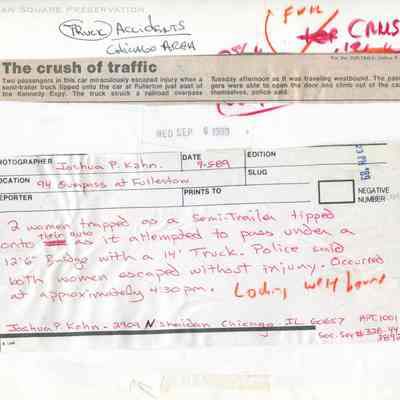 AN SQUARE PRESERVATION
TRUCK ACCIDENTS
CHICAGO AREA
FULL
The crush of traffic
Two passengers in this car miraculously escaped injury when a
semi-trailer truck tipped onto the car at Fullerton just east of
the Kennedy Expy. The truck struck a railroad overpass
Tuesday afternoon as it was traveling westbound. The
gers were able to open the door and climb out of the
themselves, police said.
WED SEP 6 1989
HOTOGRAPHER Joshua P. Kahn.
DATE 9-5-89
EDITION
OCATION 94 Surpass at Fullerton
SLUG
EPORTER
PRINTS TO
NEGATIVE
NUMBER
2 women trapped as a semi-Trailer tipped
onto their auto as it attempted to pass under a
12'6" Bridge with a 14' Truck. Police said
both women escaped without injury. Occurred
at approximately 4:30 pm. Looking west bound
Joshua P. Kahn. 3909 N Sheridan Chicago, IL 60657 APT. 1001
Soc. Sec #